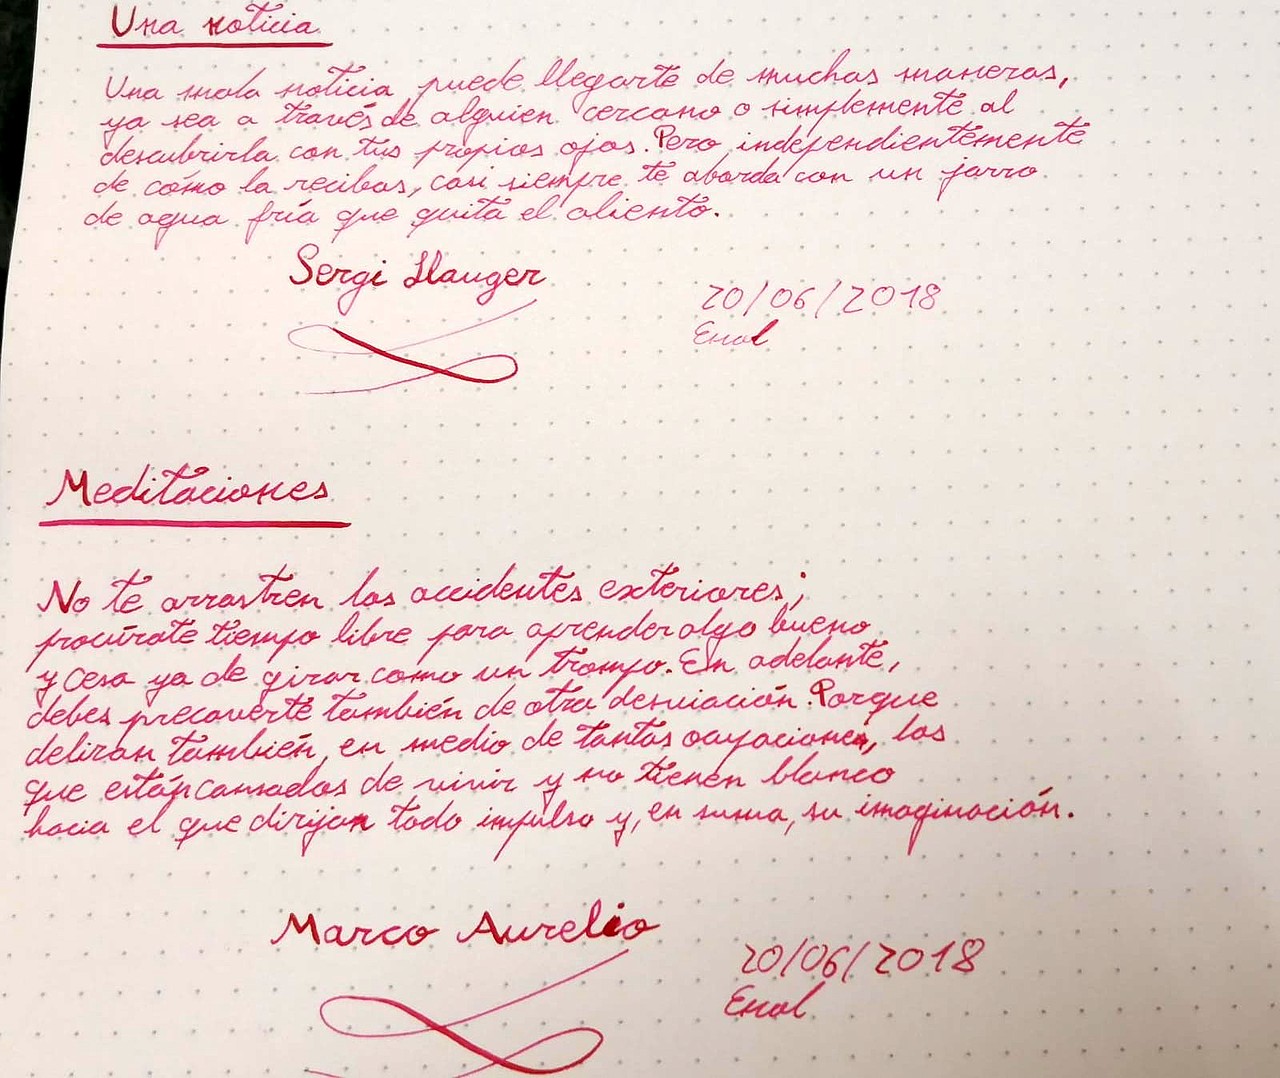 Una noticia
Una mala noticia puede llegarte de muchas maneras,
ya sea a través de alguien cercano o simplemente al
descubrirla con tus propios ojos. Pero independientemente
de cómo la recibas, casi siempre te aborda con un jarro
de agua fría que quita el aliento.
Sergi Llauger
20/06/2018
Enol
Meditaciones
No te arrastren los accidentes exteriores;
procúrate tiempo libre para aprender algo bueno
y cesa ya de girar como un trompo. En adelante,
debes precaverte también de otra desviación. Porque
deliran también, en medio de tantas ocupaciones, los
que están cansados de vivir y no tienen blanco
hacia el que dirijan todo impulso y, en suma, su imaginación.
Marco Aurelio
20/06/2018
Enol